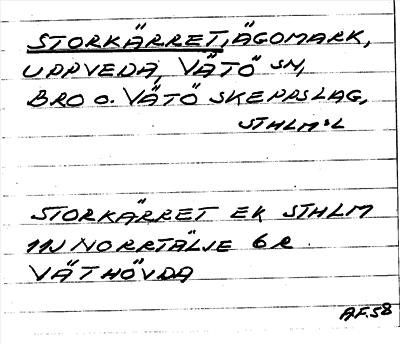 STORKÄRRET, ÄGOMARK,
UPPVEDA, VÄTÖ SN,
BRO O. VÄTÖ SKEPPSLAG,
STHLM:L
STORKÄRRET EK STHLM
11J NORRTÄLJE 6 R
VÄTHÖVDA
AF.58